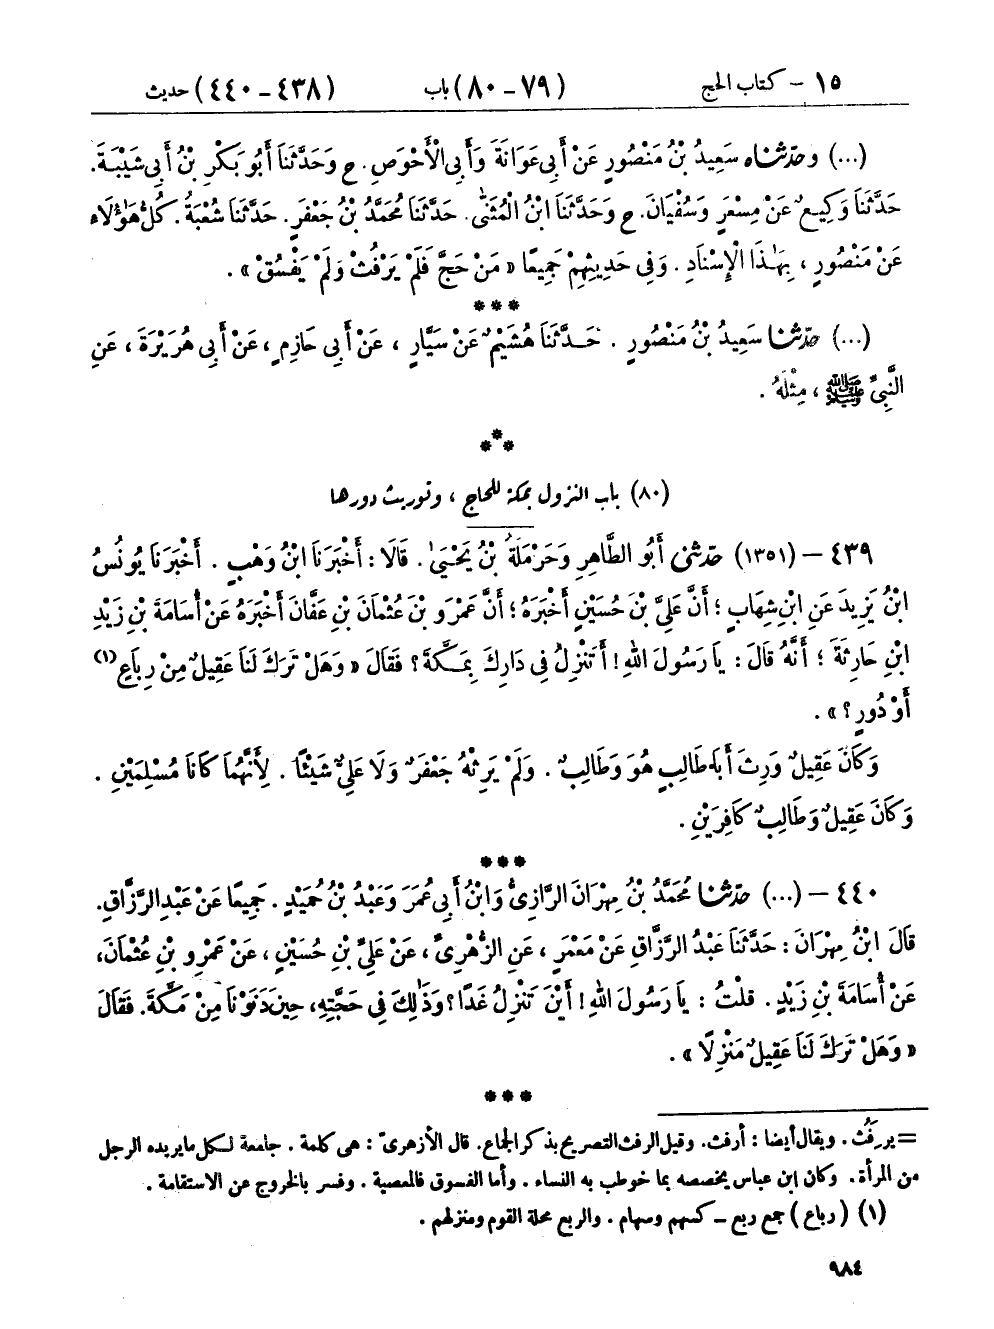 ١٥ – كتاب الحج (٧٩ – ٨٠) باب (٤٣٨ – ٤٤٠) حديث
(...) وحدّثناه سَعِيدُ بْنُ مَنْصُورٍ عَنْ أَبِي عَوَانَةَ وَأَبِي الْأَحْوَصِ. ح وَحَدَّثَنَا أَبُو بَكْرِ بْنُ أَبِي شَيْبَةَ.
حَدَّثَنَا وَكِيعٌ عَنْ مِسْعَرٍ وَسُفْيَانَ. ح وَحَدَّثَنَا ابْنُ الْمُثَنَّىٰ. حَدَّثَنَا مُحَمَّدُ بْنُ جَعْفَرٍ. حَدَّثَنَا شُعْبَةُ. كُلُّ هَٰؤُلَاءِ
عَنْ مَنْصُورٍ، بِهَٰذَا الْإِسْنَادِ. وَفِي حَدِيثِهِمْ جَمِيعًا « مَنْ حَجَّ فَلَمْ يَرْفُثْ وَلَمْ يَفْسُقْ ».
***
(...) حدّثنا سَعِيدُ بْنُ مَنْصُورٍ . حَدَّثَنَا هُشَيْمٌ عَنْ سَيَّارٍ ، عَنْ أَبِي حَازِمٍ، عَنْ أَبِي هُرَيْرَةَ ، عَنِ
النَّبِيِّ ﷺ ، مِثْلَهُ .
***
(٨٠) باب النزول بمكة للحاج ، وتوريث دورها
٤٣٩ – (١٣٥١) حدّثني أَبُو الطَّاهِرِ وَحَرْمَلَةُ بْنُ يَحْيَىٰ . قَالَا : أَخْبَرَنَا ابْنُ وَهْبٍ . أَخْبَرَنَا يُونُسُ
ابْنُ يَزِيدَ عَنِ ابْنِ شِهَابٍ ؛ أَنَّ عَلِيَّ بْنَ حُسَيْنٍ أَخْبَرَهُ ؛ أَنَّ عَمْرَو بْنَ عُثْمَانَ بْنِ عَفَّانَ أَخْبَرَهُ عَنْ أُسَامَةَ بْنِ زَيْدِ
ابْنِ حَارِثَةَ ؛ أَنَّهُ قَالَ : يَا رَسُولَ اللهِ ! أَتَنْزِلُ فِي دَارِكَ بِمَكَّةَ ؟ فَقَالَ « وَهَلْ تَرَكَ لَنَا عَقِيلٌ مِنْ رِبَاعٍ(١)
أَوْ دُورٍ ؟ » .
وَكَانَ عَقِيلٌ وَرِثَ أَبَا طَالِبٍ هُوَ وَطَالِبٌ . وَلَمْ يَرِثْهُ جَعْفَرٌ وَلَا عَلِيٌّ شَيْئًا . لِأَنَّهُمَا كَانَا مُسْلِمَيْنِ .
وَكَانَ عَقِيلٌ وَطَالِبٌ كَافِرَيْنِ .
***
٤٤٠ – (...) حدّثنا مُحَمَّدُ بْنُ مِهْرَانَ الرَّازِيُّ وَابْنُ أَبِي عُمَرَ وَعَبْدُ بْنُ حُمَيْدٍ . جَمِيعًا عَنْ عَبْدِ الرَّزَّاقِ.
قَالَ ابْنُ مِهْرَانَ : حَدَّثَنَا عَبْدُ الرَّزَّاقِ عَنْ مَعْمَرٍ ، عَنِ الزُّهْرِيِّ ، عَنْ عَلِيِّ بْنِ حُسَيْنٍ ، عَنْ عَمْرِو بْنِ عُثْمَانَ،
عَنْ أُسَامَةَ بْنِ زَيْدٍ . قلْتُ : يَا رَسُولَ اللهِ ! أَيْنَ تَنْزِلُ غَدًا ؟ وَذَٰلِكَ فِي حَجَّتِهِ، حِينَ دَنَوْنَا مِنْ مَكَّةَ. فَقَالَ
« وَهَلْ تَرَكَ لَنَا عَقِيلٌ مَنْزِلًا » .
***
= يرفِث . ويقال أيضا : أرفث. وقيل الرفث التصريح بذكر الجماع. قال الأزهريّ : هى كلمة . جامعة لسكل مايريده الرجل
من المرأة . وكان ابن عباس يخصصه بما خوطب به النساء . وأما الفسوق فالمعصية . وفسر بالخروج عن الاستقامة .
(١) ( رباع ) جمع ربع – كسهم وسهام . والربع محلة القوم ومنزلهم .
٩٨٤